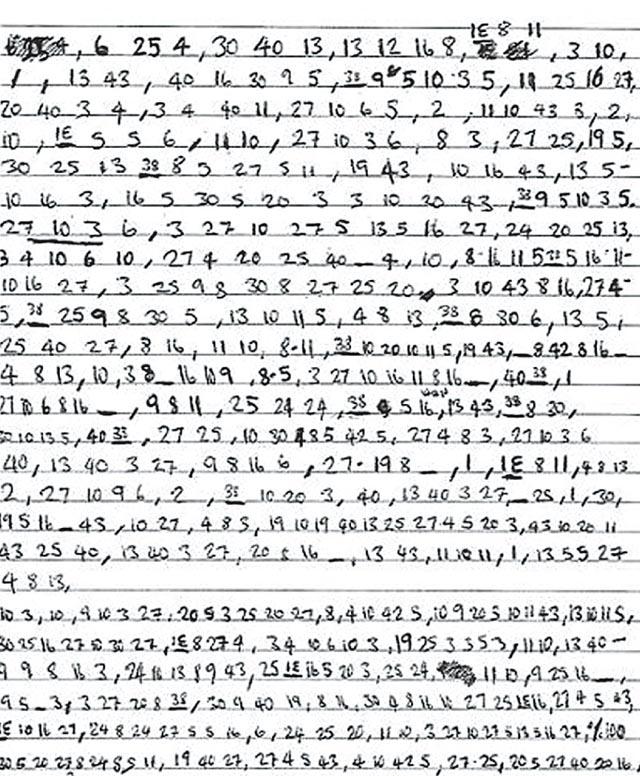 1E 8 11
4, 6 25 4, 30 40 13, 13 12 16 8, 3 10,
1, 13 43, 40 16 30 9 5, 38 9 8 5 10 3 5, 11 25 16 27,
20 40 3 4, 3 4 40 11, 27 10 6 5, 2, 11 10 43 3, 2,
10, 1E 5 5 6, 11 10, 27 10 3 6, 8 3, 27 25, 19 5,
30 25 13 38 8 5 27 5 11, 19 43, 10 16 43, 13 5-
10 16 3, 16 5 30 5 20 3 3 10 20 43, 38 9 5 10 3 5.
27 10 3 6, 3 27 10 27 5 13 5 16 27, 24 20 25 13,
3 4 10 6 10, 27 4 20 25 40 _ 4, 10, 8-16 11 5 38 5 16-11-
10 16 27, 3 25 9 8 30 8 27 25 20, 3 10 43 8 16, 27 4-
5, 38 25 9 8 30 5, 13 10 11 5, 4 8 13, 38 8 30 6, 13 5,
25 40 27, 8 16, 11 10, 8-11, 38 10 20 10 11 5, 19 43, _ 8 42 8 16 _
4 8 13, 10, 38 _ 16 10 9, 8-5, 3 27 10 16 11 8 16 _, 40 38, 1
27 10 6 8 16 _, 9 8 11, 25 24 24, 38 9 5 16, 13 43, 38 8 30,
30 10 13 5, 40 38, 27 25, 10 30 4 8 5 42 5, 27 4 8 3, 27 10 3 6
40, 13 40 3 27, 9 8 16 6, 27-19 8 _, 1, 1E 8 11, 4 8 13
2, 27 10 9 6, 2, 38 10 20 3, 40, 13 40 3 27 _ 25, 1, 30,
19 5 16 _ 43, 10 27, 4 8 3, 19 10 19 40 13 25 27 4 5 20 3, 43 10 20 11
43 25 40, 13 40 3 27, 20 8 16 _, 13 43, 11 10 11, 1, 13 5 5 27
4 8 13,
10 3, 10, 9 10 3 27-20 5 3 25 20 27, 8, 4 10 42 5, 10 9 20 5 10 11 43, 13 10 11 5,
30 25 16 27 10 30 27, 1E 8 27 4, 3 4 10 6 10 3, 19 25 3 3 5 3, 11 10, 13 40-
9 9 8 16 3, 24 16 13 8 9 43, 25 1E 16 5 20 3, 25 24, 11 10, 9 25 16 _,
9 5 _ 3, 3 27 20 8 38, 30 9 40 19, 8 16, 30 9 8 16 10 27 25 1E 16, 27 4 5 43,
1E 10 16 27, 24 8 24 27 5 5 16, 6, 24 25 20, 11 10, 3 27 10 27 5 13 5 16 27, % 100
30 5 20 27 8 24 8 5 11, 19 40 27, 27 4 5 43, 4 10 42 5, 27-25, 20 5 27 40 20 16,